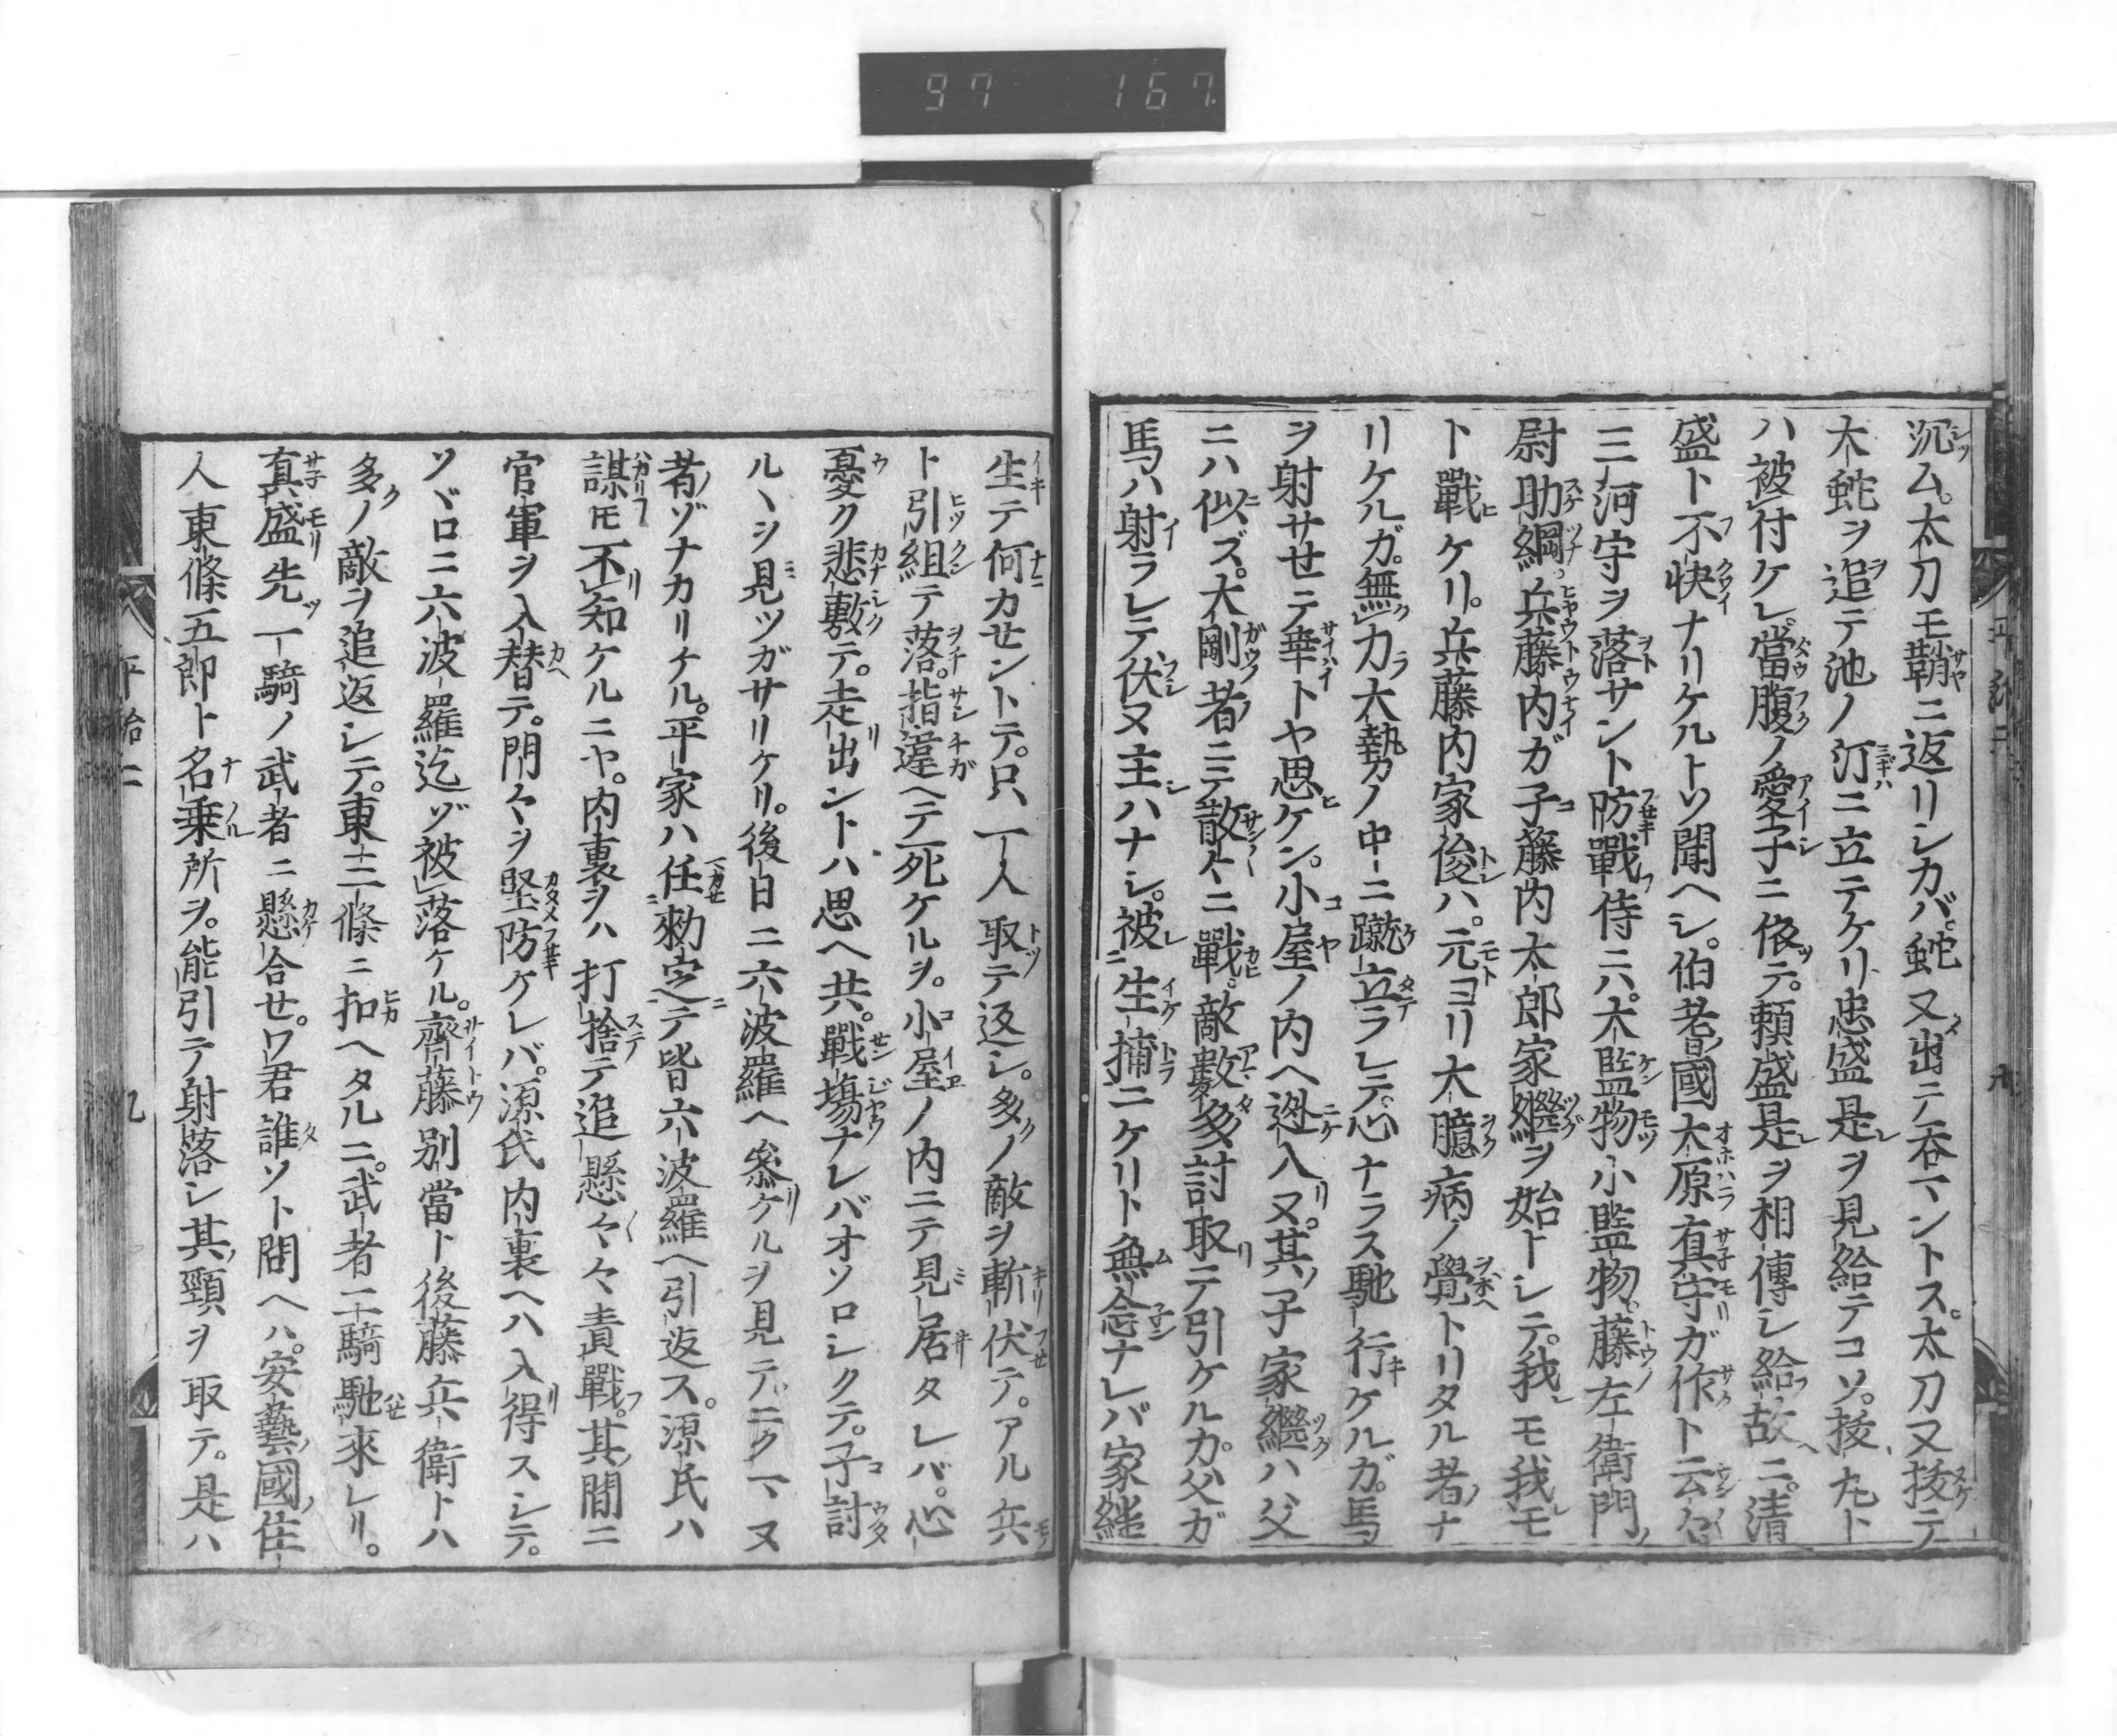 97 167
沉ム。太刀モ鞘ニ返リシカバ。蛇又出テ呑マントス。太刀又拔テ
大蛇ヲ追テ池ノ汀ニ立テケリ忠盛是ヲ見給テコソ。拔丸ト
ハ被付ケレ。當腹ノ愛子ニ依テ。頼盛是ヲ相傳シ給故ニ。清
盛ト不快ナリケルトソ聞ヘシ。伯耆國大原真守ガ作ト云々
三河守ヲ落サント防戰侍ニハ。大監物小監物。藤左衛門
尉助綱。兵藤内ガ子藤内太郎家繼ヲ始トシテ。我モ我モ
ト戰ケリ。兵藤内家俊ハ。元ヨリ大臆病ノ覺トリタル者ナ
リケルガ。無力大勢ノ中ニ蹴立ラレテ。心ナラス馳行ケルガ。馬
ヲ射サセテ幸トヤ思ケン。小屋ノ内ヘ迯入ヌ。其子家繼ハ父
ニハ似ズ。大剛者ニテ散々ニ戰。敵數多討取テ引ケルカ。父ガ
馬ハ射ラレテ伏ヌ主ハナシ。被生捕ニケリト無念ナレバ家継
生テ何カセントテ。只一人取テ返シ。多ノ敵ヲ斬伏テ。アル兵
ト引組テ落。指違ヘテ死ケルヲ。小屋ノ内ニテ見居タレバ。心
憂ク悲敷テ。走出ントハ思ヘ共。戰場ナレバオソロシクテ。子討
ルヽヲ見ツガサリケリ。後日ニ六波羅ヘ參ケルヲ見テニクマヌ
者ゾナカリケル。平家ハ任勅定テ皆六波羅ヘ引返ス。源氏ハ
謀モ不知ケルニヤ。内裏ヲハ打捨テ追懸々々責戰。其間ニ
官軍ヲ入替テ。門々ヲ堅防ケレバ。源氏内裏ヘハ入得スシテ。
ソヾロニ六波羅迄ゾ被落ケル。齊藤別當ト後藤兵衛トハ
多ノ敵ヲ追返シテ。東三條ニ扣ヘタルニ。武者二騎馳來レリ。
真盛先一騎ノ武者ニ懸合セ。ワ君誰ソト問ヘハ。安藝國住
人東條五郎ト名乗所ヲ。能引テ射落シ其頸ヲ取テ。是ハ
平治二 九